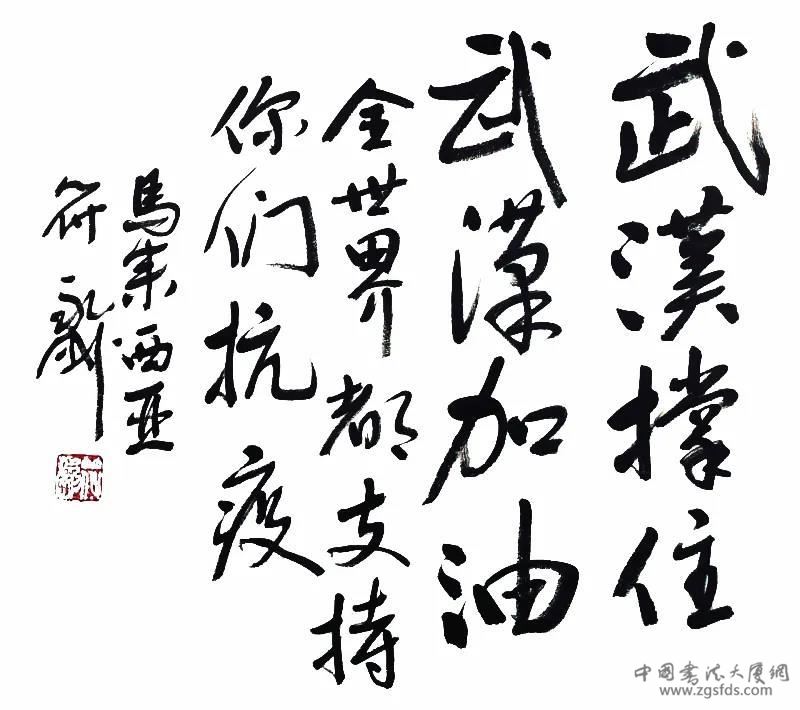 武漢撑住
武漢加油
全世界都支持
你们抗疫
馬来西亚
符永刚
中國書法大廈網
www.zgsfds.com